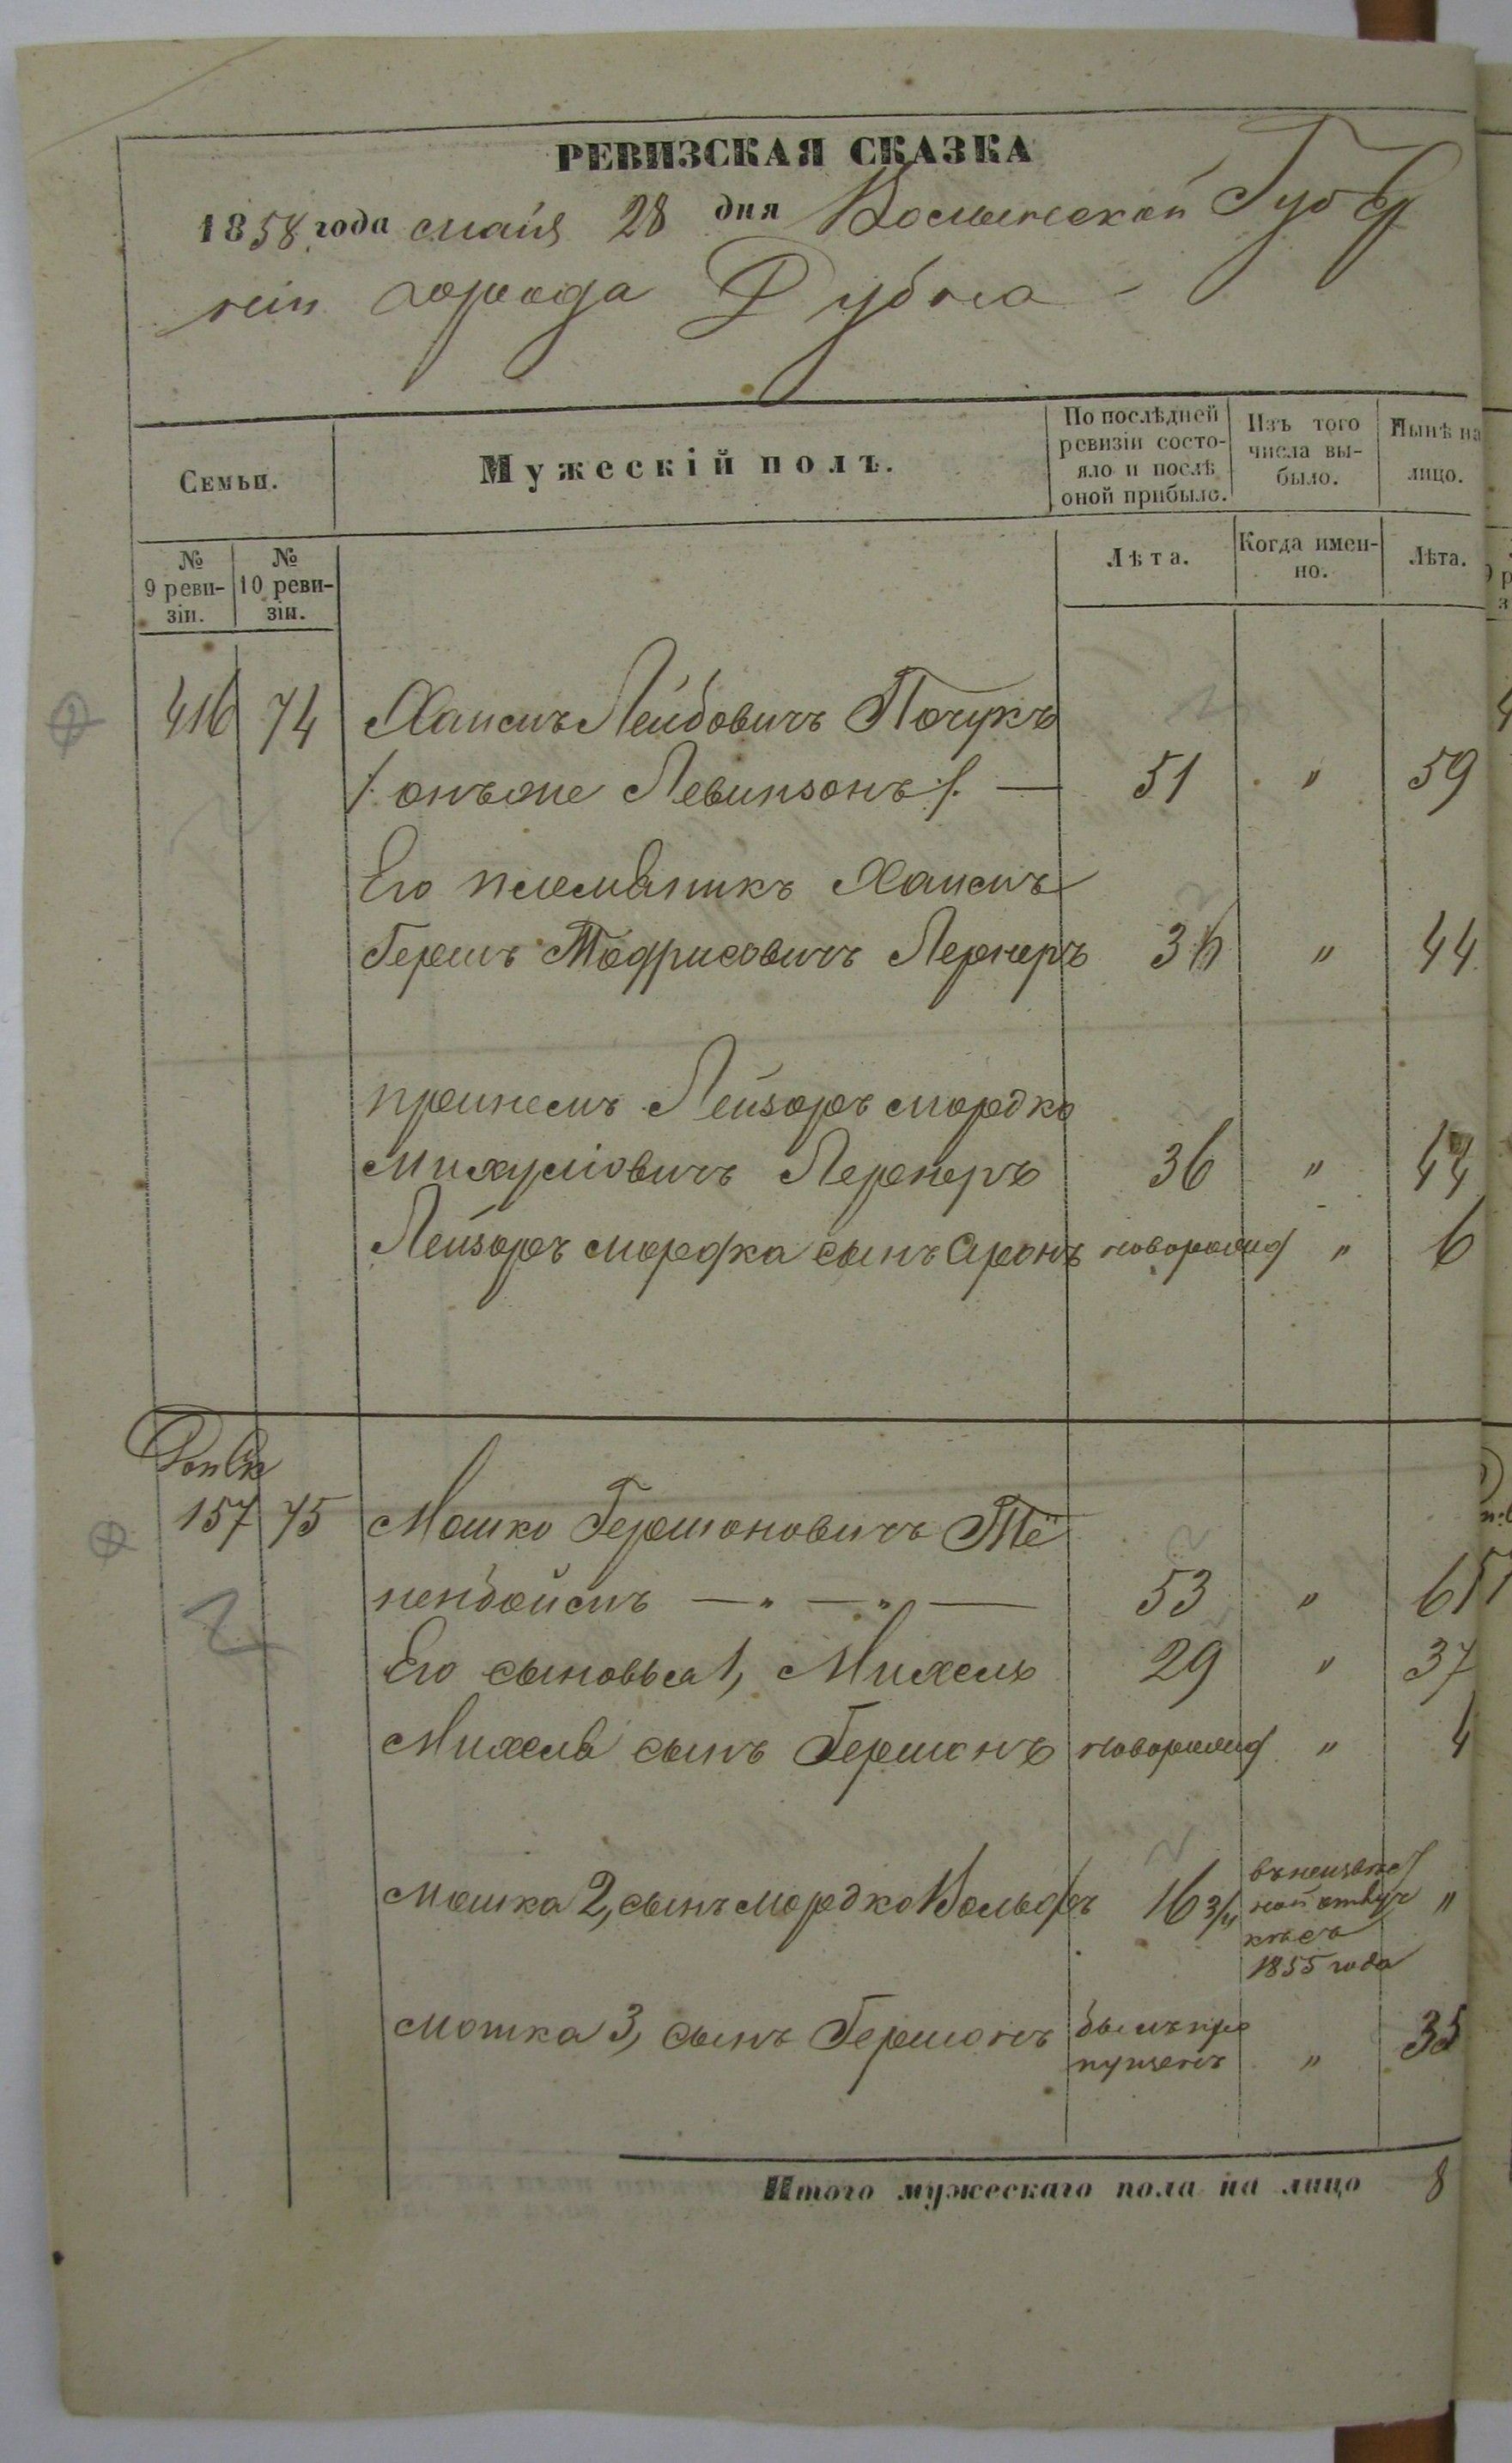 РЕВИЗСКАЯ СКАЗКА
1858 года мая 28 дня Волынской Губер
ніи города Дубна -
Семьи.
Мужескій полъ.
По послѣдней
ревизіи состо-
яло и послѣ
оной прибыло.
Изъ того
числа вы-
было.
Нынѣ на
лицо.
№
9 реви-
зіи.
№
10 реви-
зіи.
Лѣта.
Когда имен-
но.
Лѣта.
416 74 Хаимъ Лейбовичъ Почукъ
/: онъ же Левинзонъ :/. — 51 " 59
Его племяникъ Хаимъ
Гершъ Тодрисовичъ Лернеръ 36 " 44
при немъ Лейзоръ Мордко
Михуліовичъ Лернеръ 36 " 44
Лейзоръ Мордка сынъ Аронъ новорожд " 6
157 75 Мошко Гершоновичъ Тё
ненбоймъ — " — " — 53 " 61
Его сыновья 1, Михель 29 " 37
Михеля сынъ Гершонъ новорожд " 4
Мошка 2, сынъ Мордко Вольфъ 16 3/4 въ неизвѣст
ной отлуч
кѣ съ
1855 года "
Мошка 3, сынъ Гершонъ былъ про
пущенъ " 35
Итого мужескаго пола на лицо 8